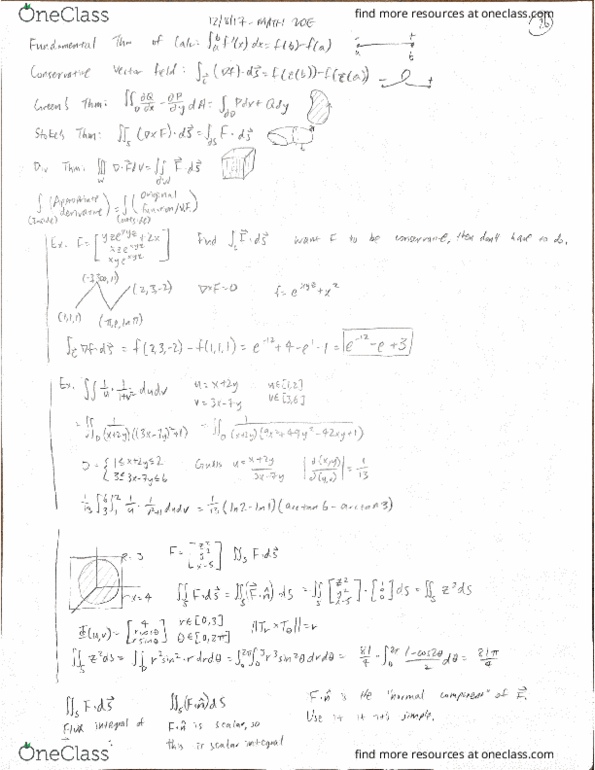 OneClass
find more resources at oneclass.com
12/8/17 - MATH 20E
26
Fundamental Thm of Calc: ∫_a^b f'(x) dx = f(b) - f(a)
a b
Conservative vector field: ∫_c (∇f)·ds = f(c(b)) - f(c(a))
Green's Thm: ∬_D ∂Q/∂x - ∂P/∂y dA = ∫_∂D Pdx + Qdy
Stokes Thm: ∬_S (∇×F)·dS = ∫_∂S F·ds
Div Thm: ∭_W ∇·F dV = ∬_∂W F·dS
∫ (Appropriate derivative) = ∫ (Original function/V.F.)
(Inside) (outside)
Ex. F = [yze^xyz + 2x, xze^xyz, xye^xyz] find ∫_c F·ds want F to be conservative, then don't have to do.
(-3,500,1) (2,3,-2) ∇×F=0 f = e^xyz + x²
(1,1,1) (π,e,ln π)
∫_c ∇f·ds = f(2,3,-2) - f(1,1,1) = e^-12 + 4 - e^1 - 1 = e^-12 - e + 3
Ex. ∬ 1/u · 1/(1+v²) dudv u = x+2y u∈[1,2]
v = 3x-7y v∈[3,6]
= ∬_D 1/((x+2y)((3x-7y)²+1)) = ∬_D 1/((x+2y)(9x²+49y²-42xy+1))
D = { 1≤x+2y≤2, 3≤3x-7y≤6 u = x+2y 3x-7y |∂(x,y)/∂(u,v)| = 1/13
1/13 ∫_3^6 ∫_1^2 1/u · 1/(v²+1) dudv = 1/13 (ln2 - ln1)(arctan 6 - arctan 3)
r=3 F = [z², y², x-5] ∬_S F·dS
x=4 ∬_S F·dS = ∬_S (F·n̂)·dS = ∬_S [z², y², x-5]·[1, 0, 0] dS = ∬_S z² dS
Φ(u,v) = [4, r cosθ, r sinθ] r∈[0,3] θ∈[0,2π] ||Tr × Tθ|| = r
∬_S z² dS = ∬_D r² sin²·r drdθ = ∫_0^2π ∫_0^3 r³ sin²θ drdθ = 81/4 · ∫_0^2π (1-cos2θ)/2 dθ = 81π/4
∬_S F·dS ∬_S (F·n̂) dS F·n̂ is the "normal component" of F.
Flux integral of F·n̂ is scalar, so Use it if it's simple.
this is scalar integral
OneClass
find more resources at oneclass.com